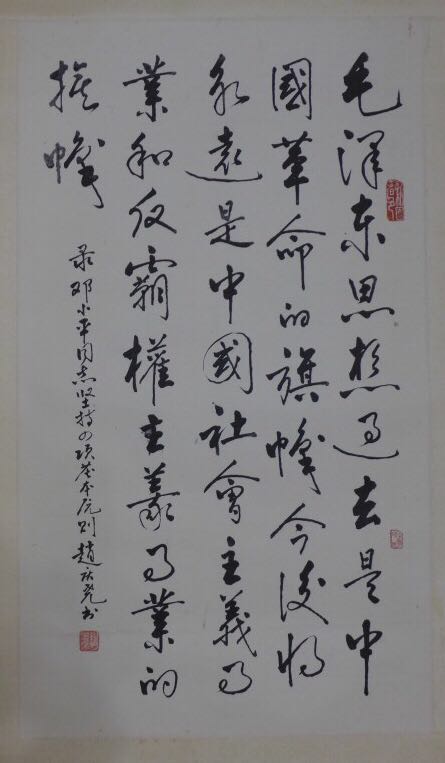 毛澤东思想过去是中
國革命的旗幟今後将
永遠是中國社會主義事
業和反霸權主義事業的
旗幟
录邓小平同志坚持四项基本原则 趙庆尧书